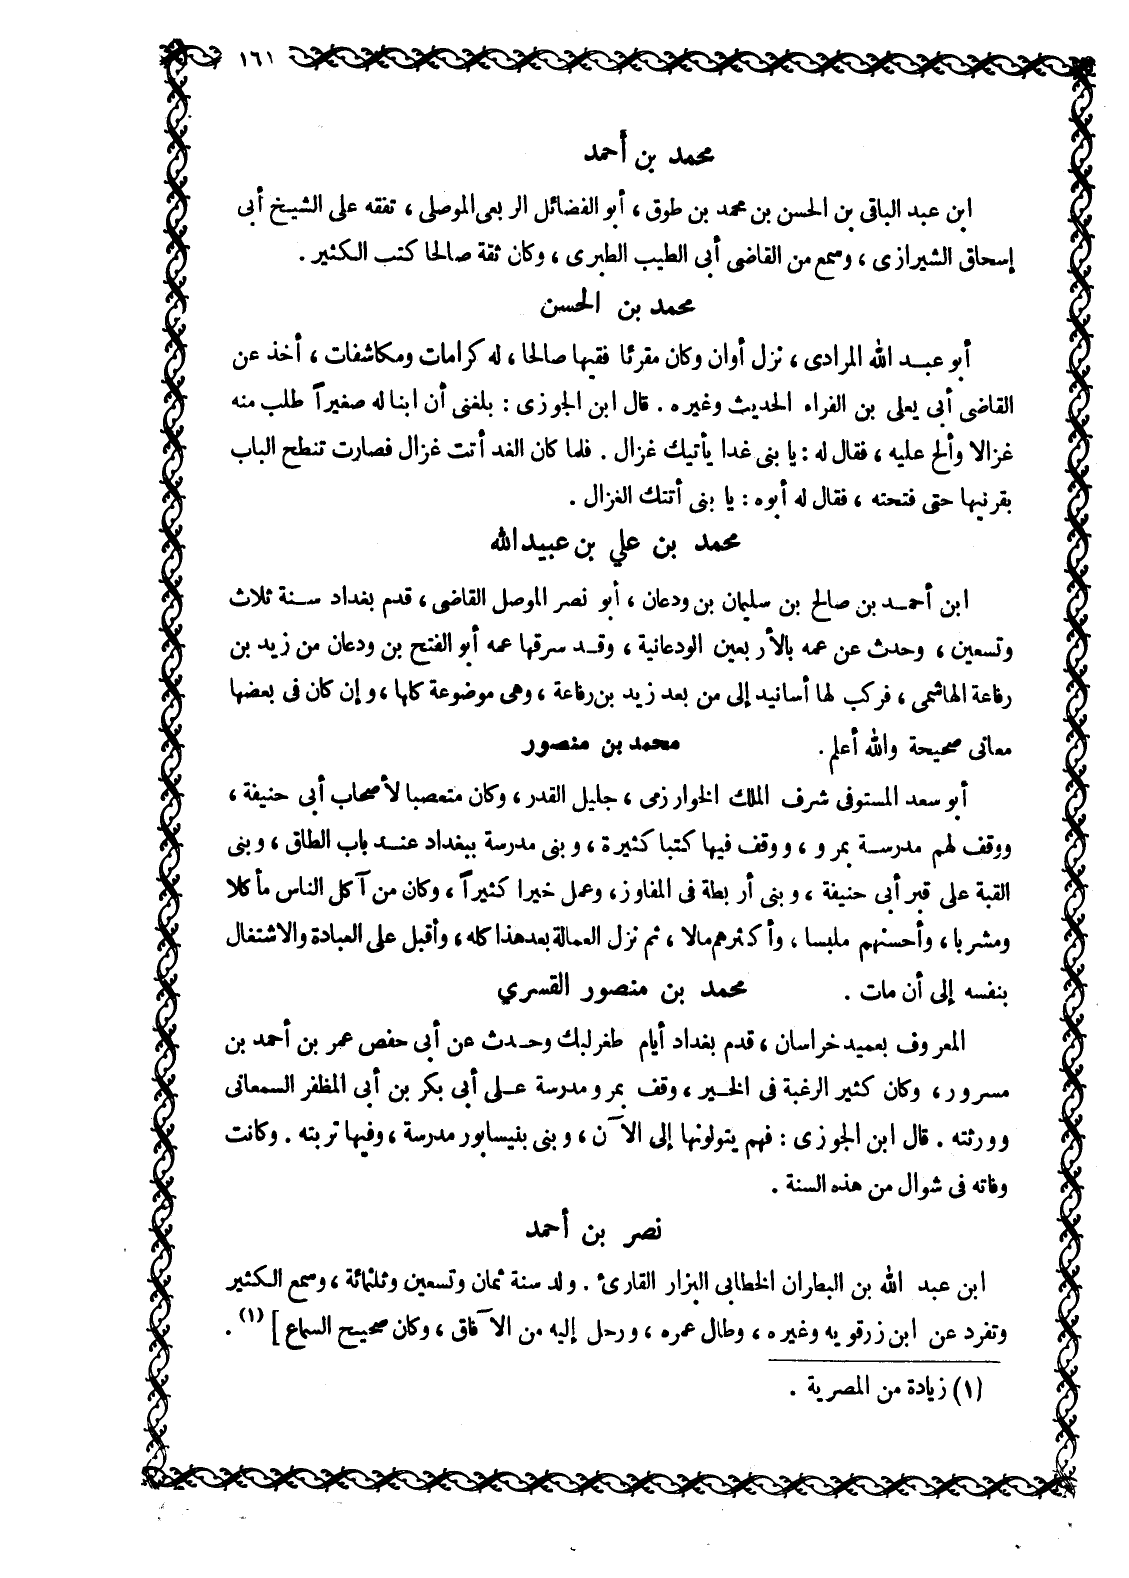 ١٦١
محمد بن أحمد
ابن عبد الباقى بن الحسن بن محمد بن طوق ، أبو الفضائل الربعى الموصلى ، تفقه على الشيخ أبى
إسحاق الشيرازى ، وسمع من القاضى أبى الطيب الطبرى ، وكان ثقة صالحا كتب الكثير .
محمد بن الحسن
أبو عبد الله المرادى ، نزل أوان وكان مقرئا فقيها صالحا ، له كرامات ومكاشفات ، أخذ عن
القاضى أبى يعلى بن الفراء الحديث وغيره . قال ابن الجوزى : بلغنى أن ابنا له صغيراً طلب منه
غزالا وألح عليه ، فقال له : يا بنى غدا يأتيك غزال . فلما كان الغد أتت غزال فصارت تنطح الباب
بقرنيها حتى فتحته ، فقال له أبوه : يا بنى أتتك الغزال .
محمد بن علي بن عبيد الله
ابن أحمد بن صالح بن سليمان بن ودعان ، أبو نصر الموصل القاضى ، قدم بغداد سنة ثلاث
وتسعين ، وحدث عن عمه بالأربعين الودعانية ، وقد سرقها عمه أبو الفتح بن ودعان من زيد بن
رفاعة الهاشمى ، فركب لها أسانيد إلى من بعد زيد بن رفاعة ، وهى موضوعة كلها ، وإن كان فى بعضها
معانى صحيحة والله أعلم . محمد بن منصور
أبو سعد المستوفى شرف الملك الخوارزمى ، جليل القدر ، وكان متعصبا لأصحاب أبى حنيفة ،
ووقف لهم مدرسة بمرو ، ووقف فيها كتبا كثيرة ، وبنى مدرسة ببغداد عند باب الطاق ، وبنى
القبة على قبر أبى حنيفة ، وبنى أربطة فى المفاوز ، وعمل خيرا كثيراً ، وكان من آكل الناس مأكلا
ومشربا ، وأحسنهم ملبسا ، وأكثرهم مالا ، ثم نزل العمالة بعد هذا كله ، وأقبل على العبادة والاشتغال
بنفسه إلى أن مات . محمد بن منصور القسري
المعروف بعميد خراسان ، قدم بغداد أيام طغرلبك وحدث عن أبى حفص عمر بن أحمد بن
مسرور ، وكان كثير الرغبة فى الخير ، وقف بمرو مدرسة على أبى بكر بن أبى المظفر السمعانى
وورثته . قال ابن الجوزى : فهم يتولونها إلى الآن ، وبنى بنيسابور مدرسة ، وفيها تربته . وكانت
وفاته فى شوال من هذه السنة .
نصر بن أحمد
ابن عبد الله بن البطران الخطابى البزار القارئ . ولد سنة ثمان وتسعين وثلثمائة ، وسمع الكثير
وتفرد عن ابن زرقويه وغيره ، وطال عمره ، ورحل إليه من الآفاق ، وكان صحيح السماع ] (١) .
(١) زيادة من المصرية .